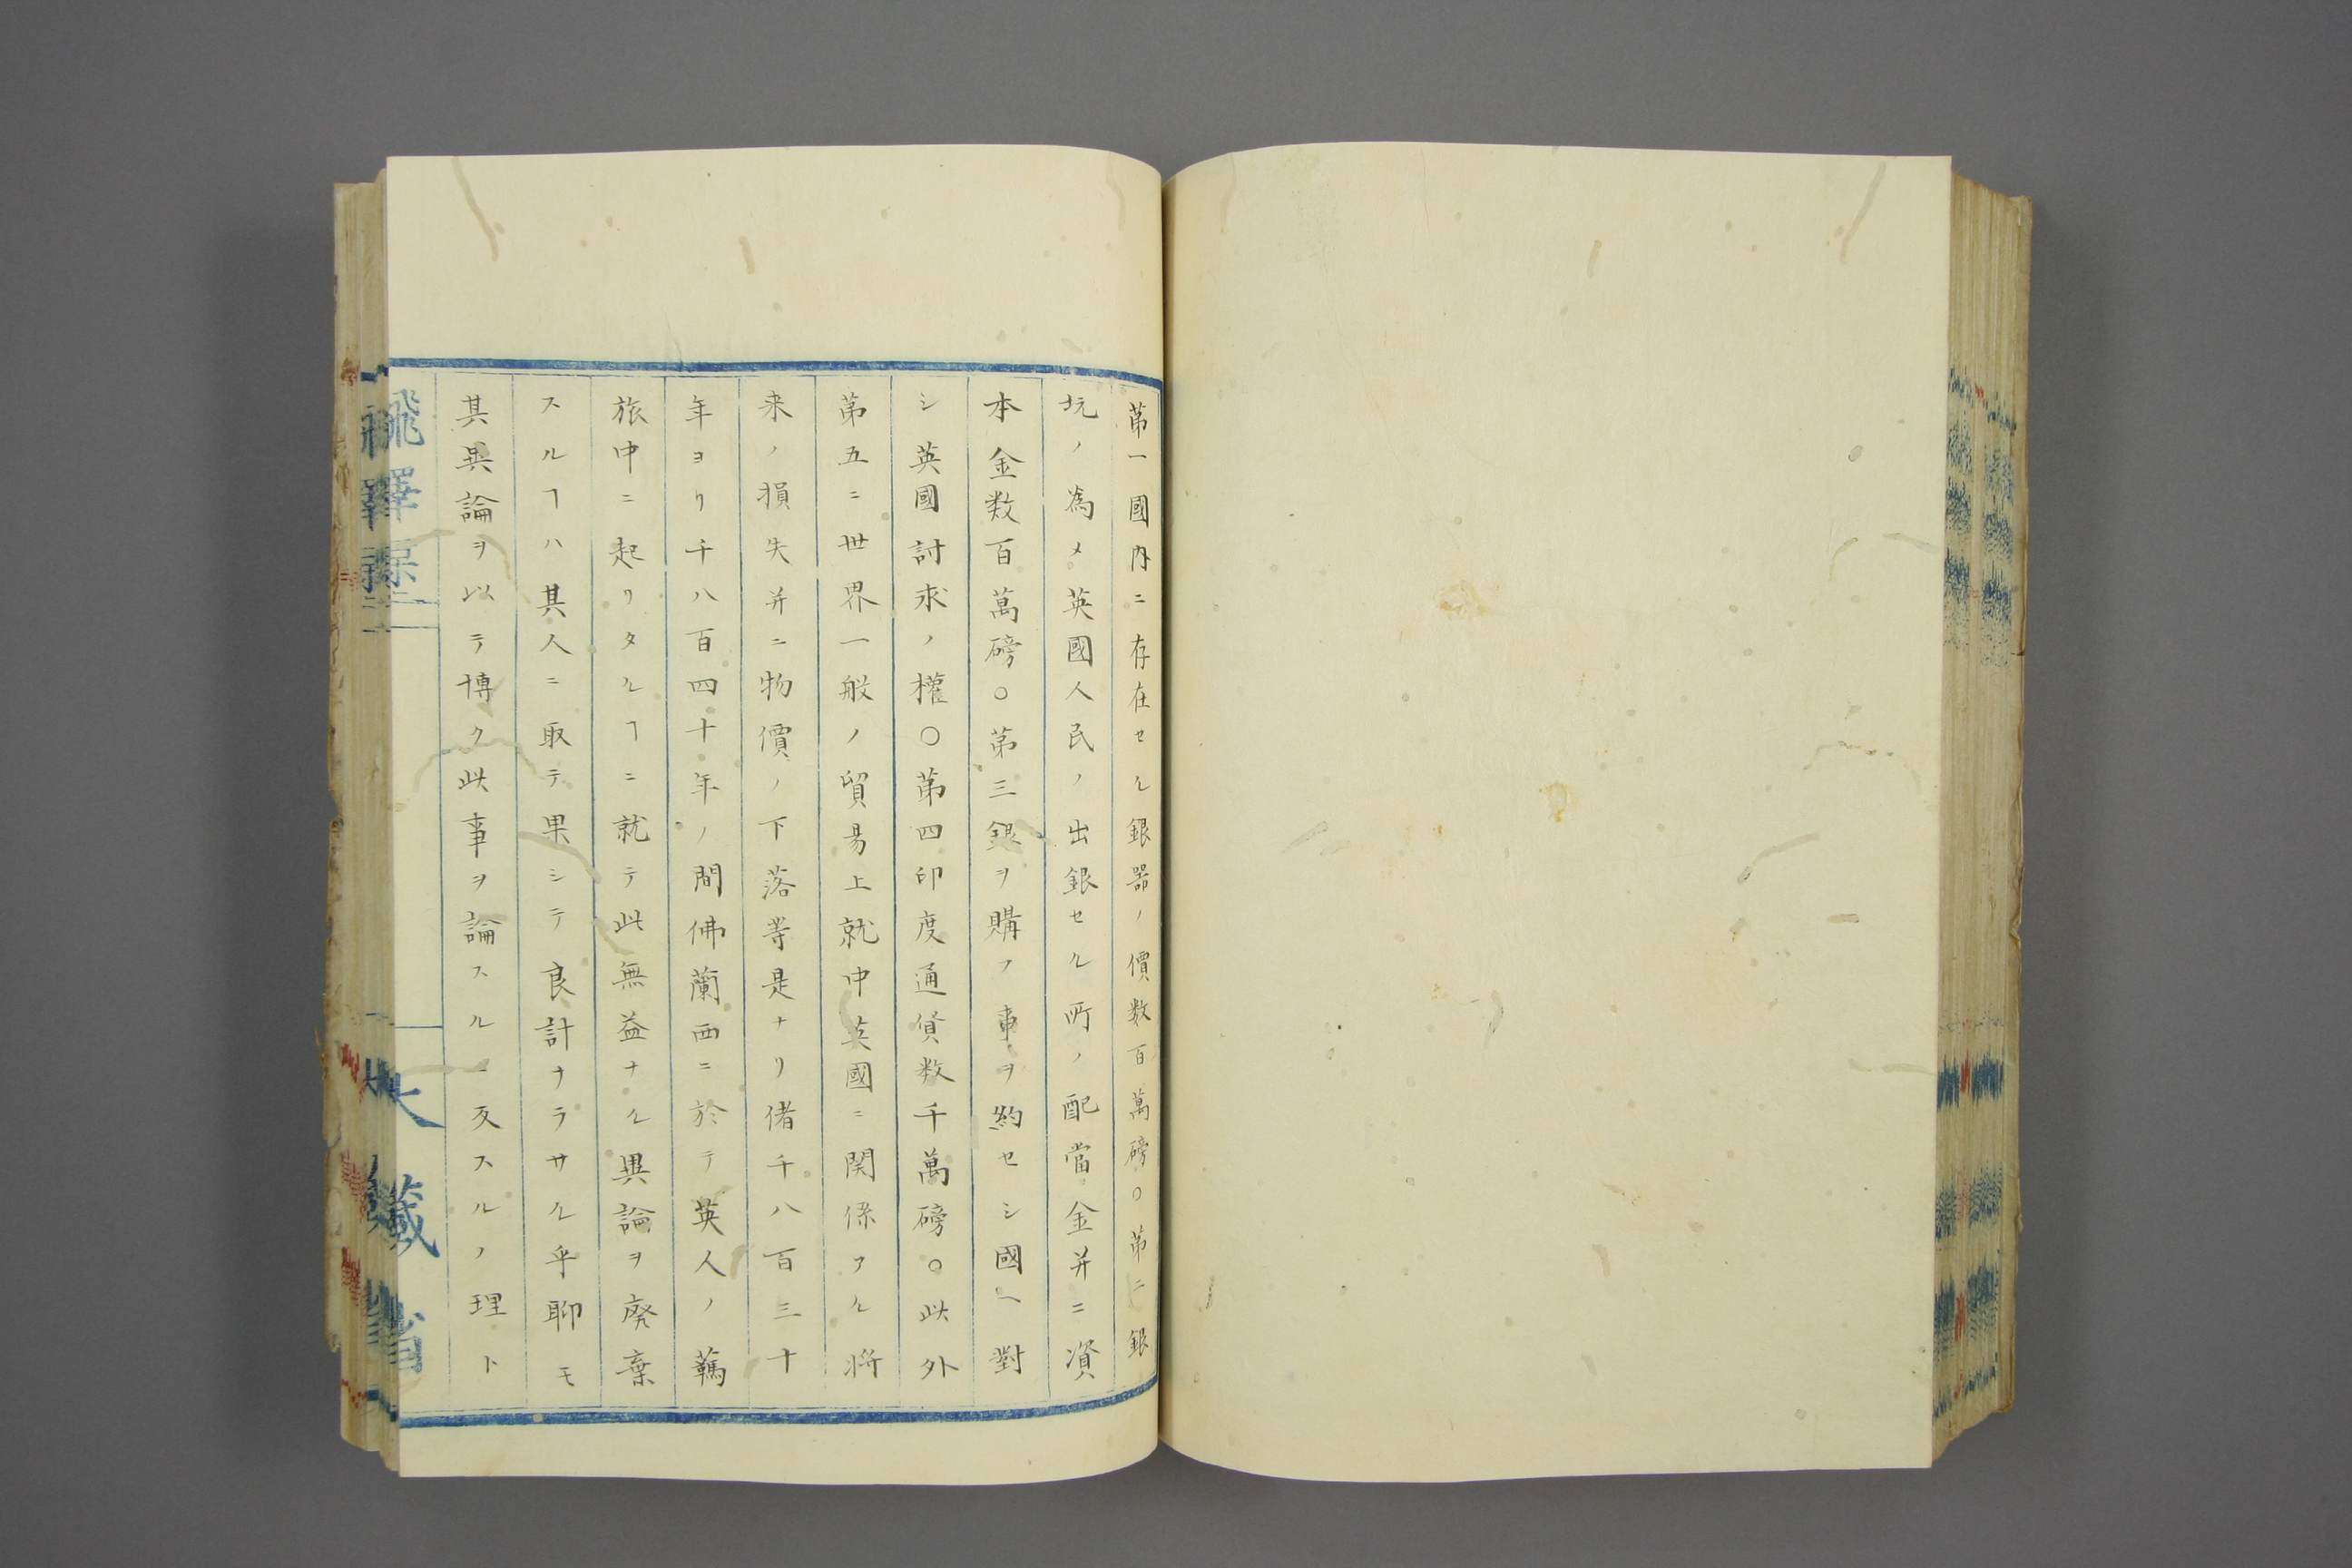 第一國内ニ存在セル銀器ノ價数百萬磅○第二銀
坑ノ為メ英國人民ノ出銀セル所ノ配當金并ニ資
本金数百萬磅○第三銀ヲ購フ事ヲ約セシ國ヘ對
シ英國討求ノ權○第四印度通貨数千萬磅○此外
第五ニ世界一般ノ貿易上就中英國ニ関係アル将
来ノ損失并ニ物價ノ下落等是ナリ偖千八百三十
年ヨリ千八百四十年ノ間佛蘭西ニ於テ英人ノ羈
旅中ニ起リタルヿニ就テ此無益ナル異論ヲ廃棄
スルヿハ其人ニ取テ果シテ良計ナラサル乎聊モ
其異論ヲ以テ博ク此事ヲ論スルニ反スルノ理ト
飜譯課
大藏省